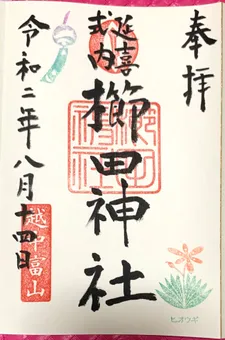 奉拝
延喜
式内
櫛田神社
櫛田
神社
令和二年八月十四日
越中富山
ヒオウギ